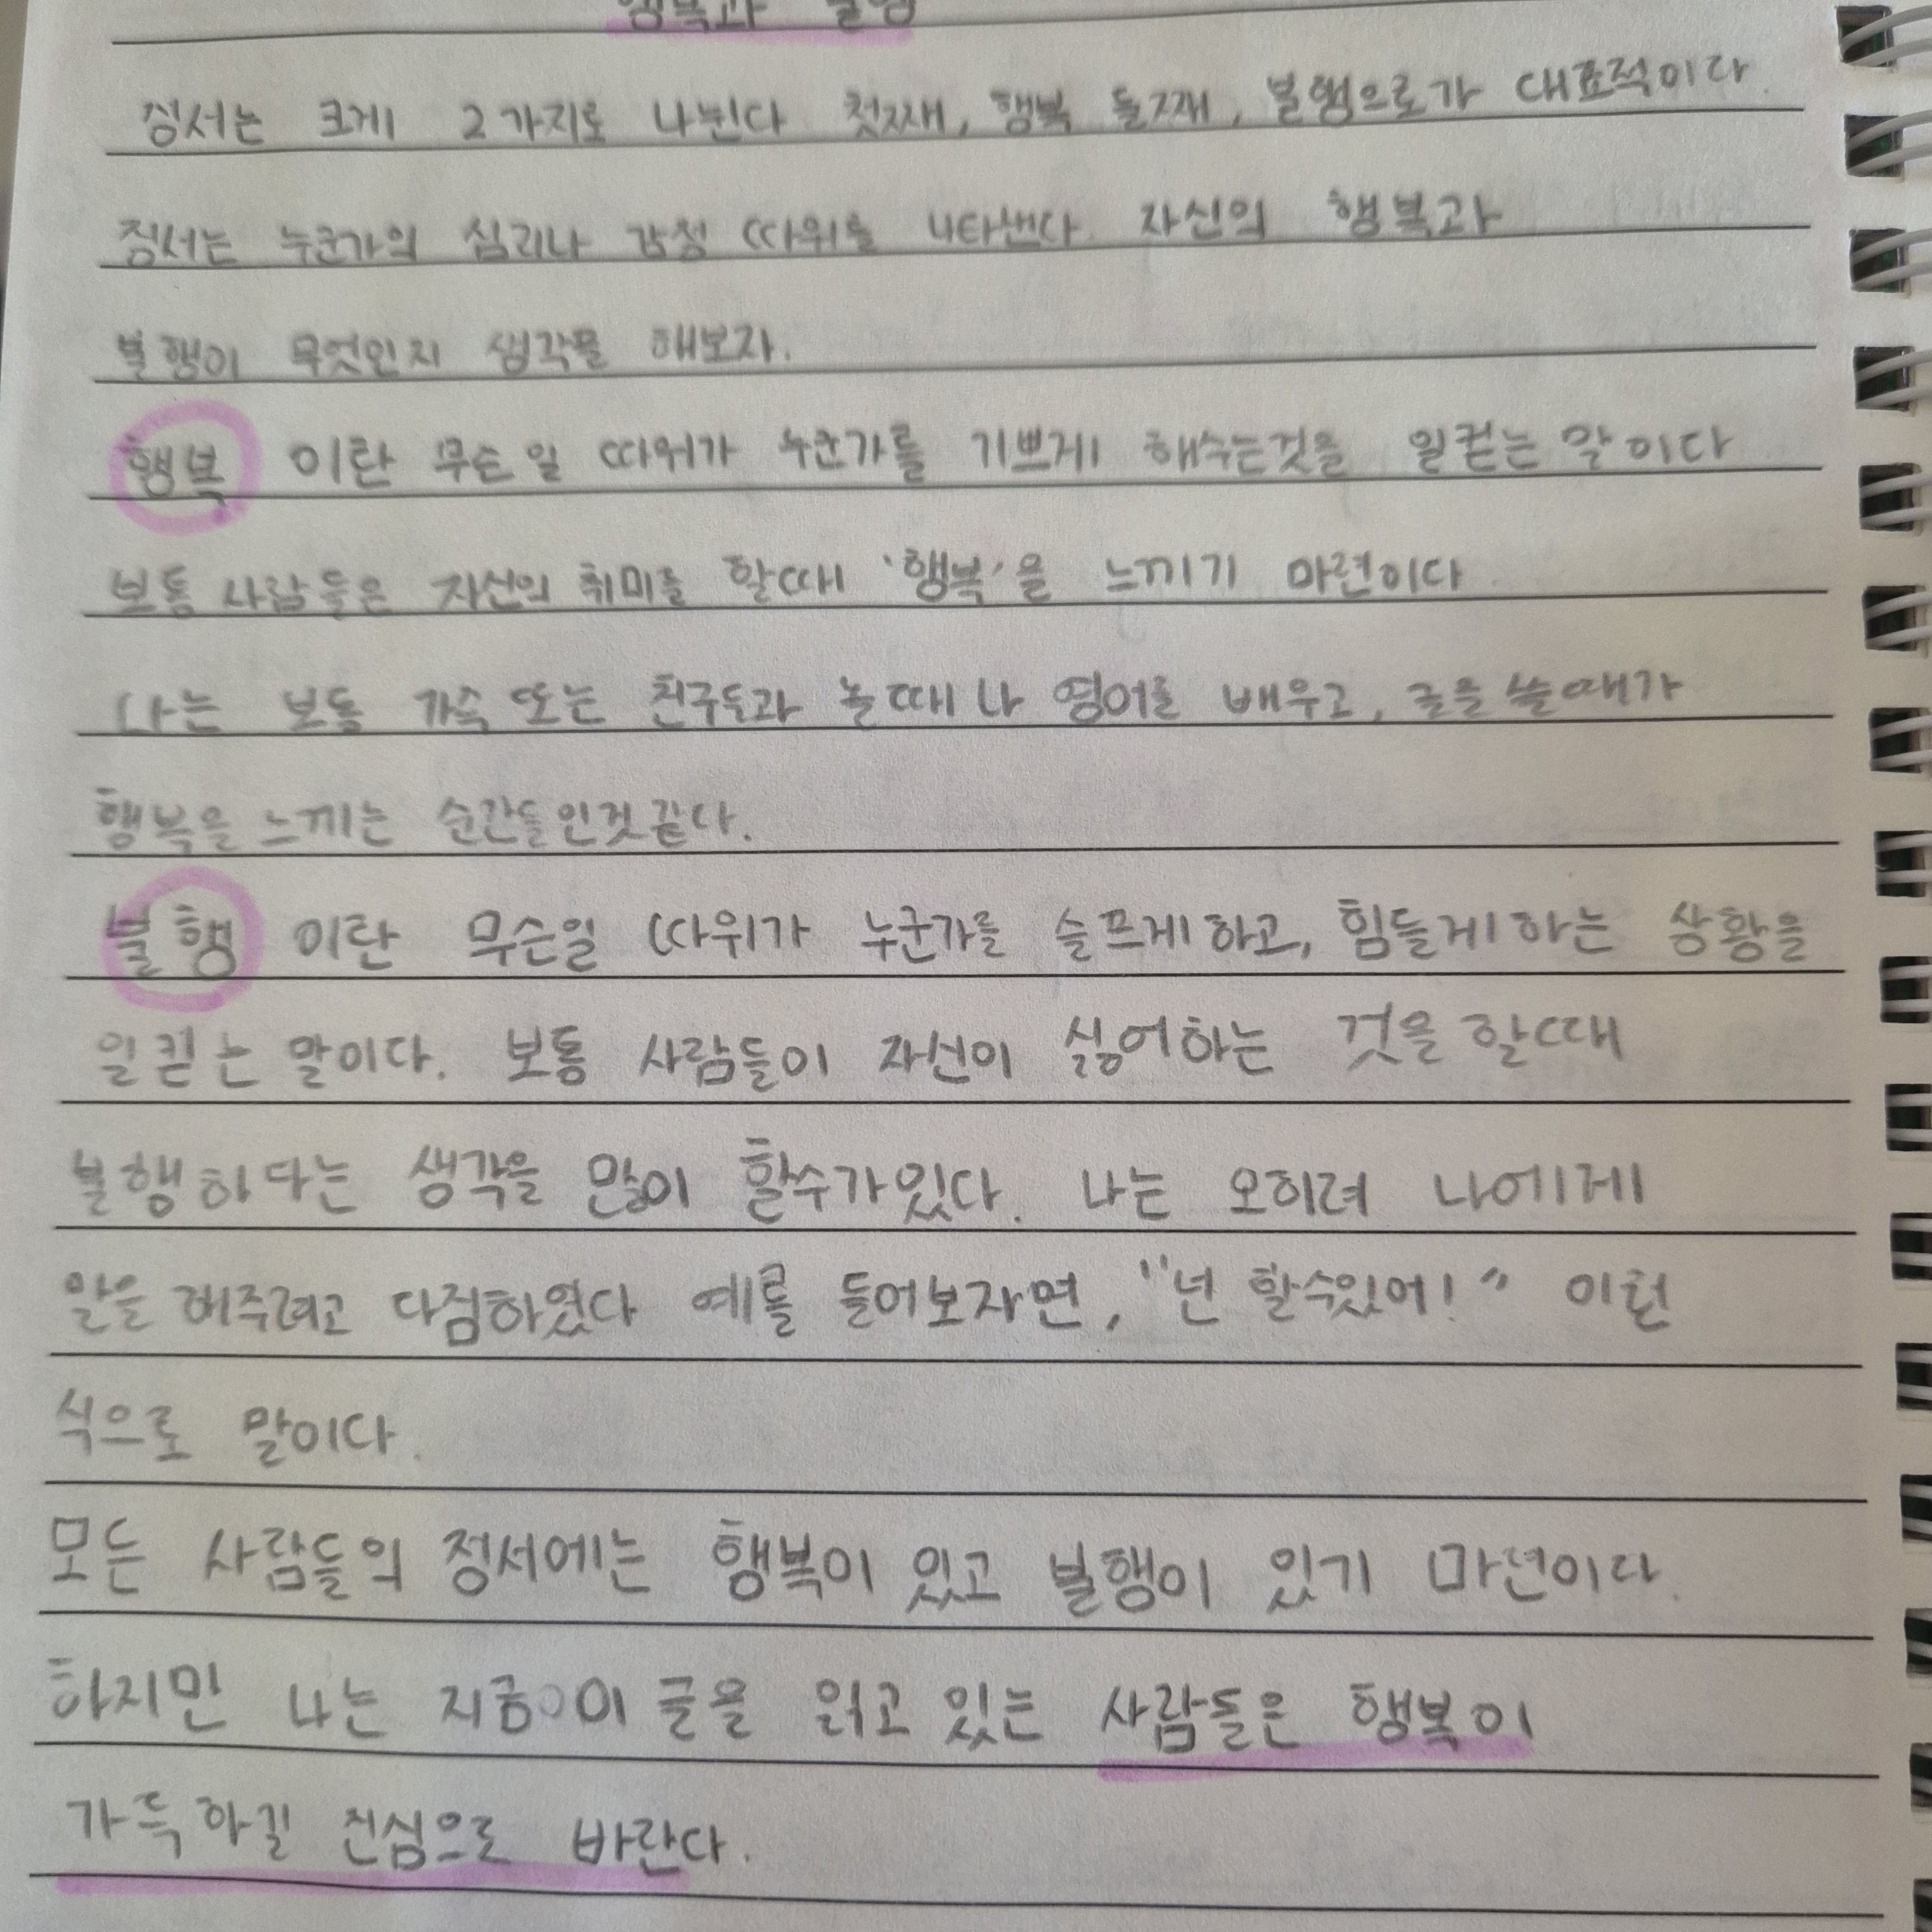 행복과 불행
정서는 크게 2가지로 나뉜다 첫째, 행복 둘째, 불행으로가 대표적이다.
정서는 누군가의 심리나 감정 따위를 나타낸다. 자신의 행복과
불행이 무엇인지 생각을 해보자.
행복 이란 무슨일 따위가 누군가를 기쁘게 해주는것을 일컫는 말이다
보통 사람들은 자신의 취미를 할때 '행복'을 느끼기 마련이다
나는 보통 가족 또는 친구들과 놀때나 영어를 배우고, 글을 쓸때가
행복을 느끼는 순간들인것 같다.
불행 이란 무슨일 따위가 누군가를 슬프게하고, 힘들게하는 상황을
일컫는 말이다. 보통 사람들이 자신이 싫어하는 것을 할때
불행하다는 생각을 많이 할수가있다. 나는 오히려 나에게
말을 해주려고 다짐하였다 예를 들어보자면, "넌 할수있어!" 이런
식으로 말이다.
모든 사람들의 정서에는 행복이 있고 불행이 있기 마련이다.
하지만 나는 지금 이 글을 읽고 있는 사람들은 행복이
가득하길 진심으로 바란다.